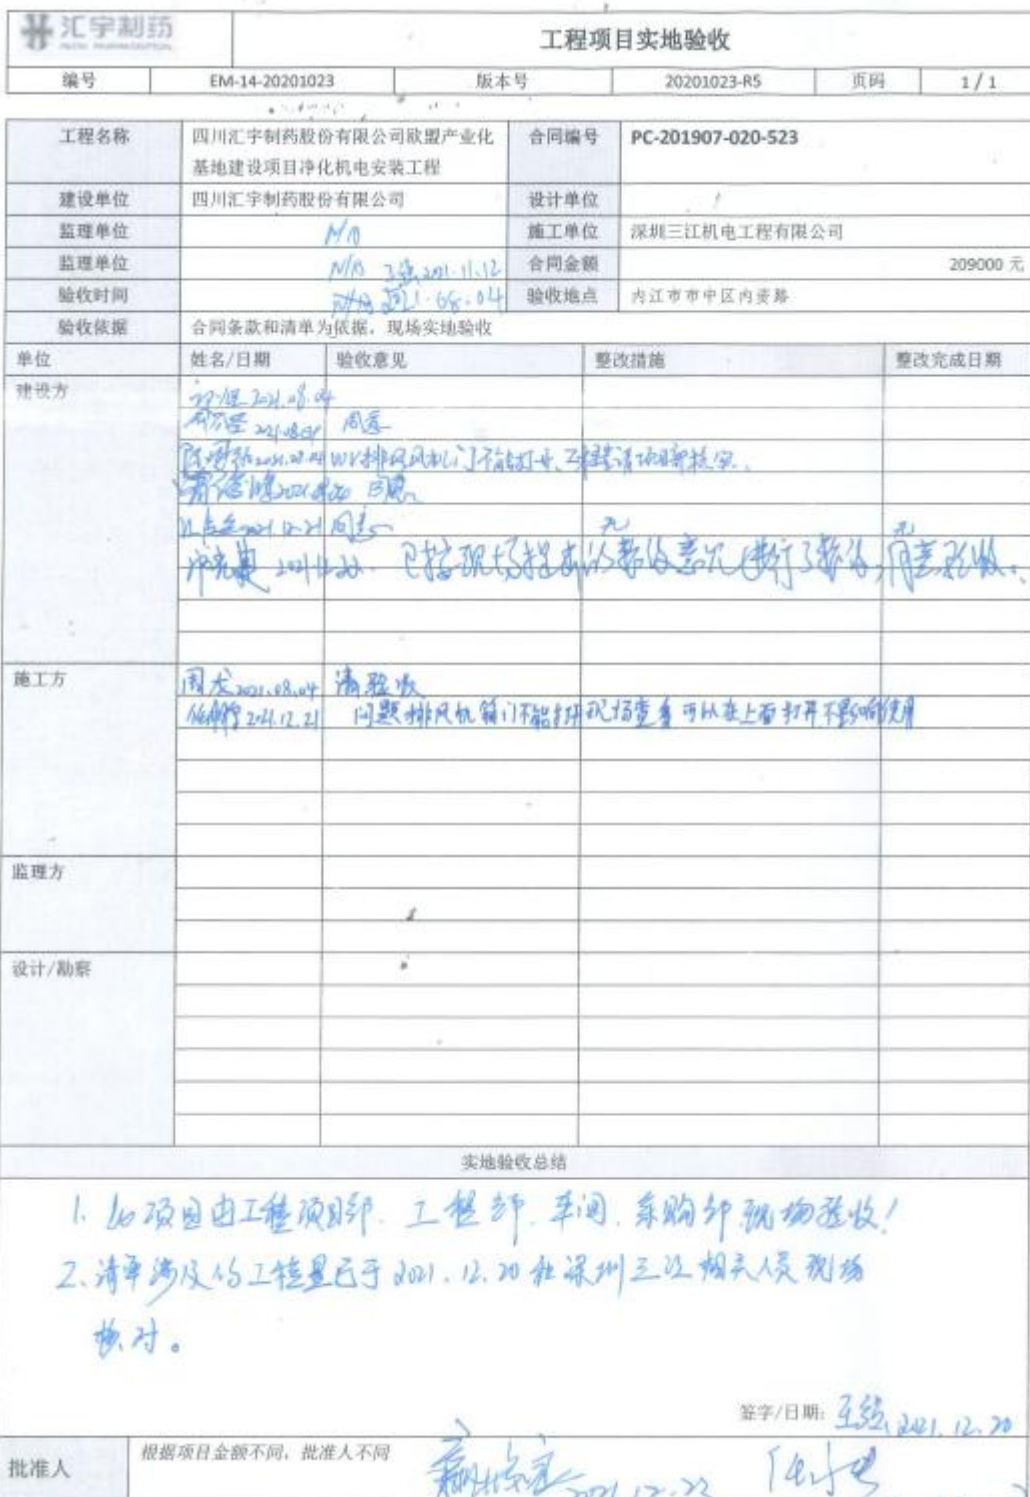 汇宇制药
工程项目实地验收
编号 EM-14-20201023 版本号 20201023-R5 页码 1 / 1
工程名称 四川汇宇制药股份有限公司欧盟产业化 合同编号 PC-201907-020-523
基地建设项目净化机电安装工程
建设单位 四川汇宇制药股份有限公司 设计单位 /
监理单位 N/A 施工单位 深圳三江机电工程有限公司
监理单位 N/A 2021.11.12 合同金额 209000 元
验收时间 2021.08.04 验收地点 内江市市中区内姜路
验收依据 合同条款和清单为依据，现场实地验收
单位 姓名/日期 验收意见 整改措施 整改完成日期
建设方 2021.08.04
2021.08.04 同意
排风风机门不能打开、
同意
2021.12.21 同意 无 无
2021.12.22. 已按现场提出的整改意见进行了整改，同意验收。
施工方 周龙 2021.08.04 请验收
2021.12.21 问题排风机箱门不能打开现场查看可以在上面打开不影响使用
监理方
设计/勘察
实地验收总结
1. 该项目由工程项目部、工程部、车间、采购部现场验收！
2、清单涉及的工程量已于2021.12.20和深圳三江相关人员现场
核对。
签字/日期: 2021.12.20
批准人 根据项目金额不同，批准人不同
2021.12.23